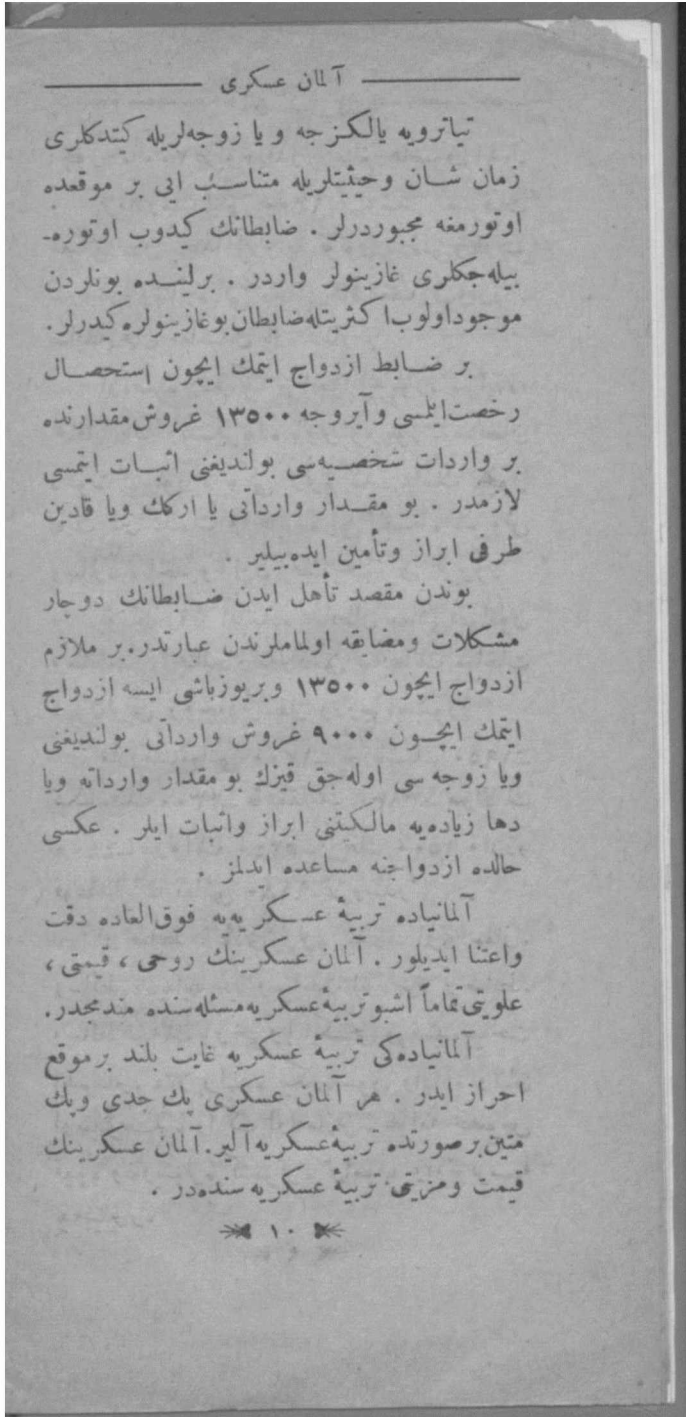 آلمان عسکری
تیاترویه یالکزجه و یا زوجه‌لریله کیتدکلری
زمان شان وحیثیتلریله متناسب ایی بر موقعده
اوتورمغه مجبوردرلر . ضابطانك کیدوب اوتوره‌ـ
بیله‌جکلری غازینولر واردر . برلینده بونلردن
موجود اولوب اکثریتله ضابطان بو غازینولره کیدرلر.
بر ضابط ازدواج ایتمك ایچون استحصال
رخصت ایلمسی وآیروجه ۱۳۵۰۰ غروش مقدارنده
بر واردات شخصیه‌سی بولندیغنی اثبات ایتمسی
لازمدر . بو مقدار وارداتی یا ارکك ویا قادین
طرفی ابراز وتأمین ایده‌بیلیر .
بوندن مقصد تأهل ایدن ضابطانك دوچار
مشکلات ومضایقه اولماملرندن عبارتدر. بر ملازم
ازدواج ایچون ۱۳۵۰۰ وبریوزباشی ایسه ازدواج
ایتمك ایچون ۹۰۰۰ غروش وارداتی بولندیغنی
ویا زوجه سی اوله‌جق قیزك بو مقدار وارداته ویا
دها زیاده‌یه مالکیتنی ابراز واثبات ایلر . عکسی
حالده ازدواجنه مساعده ایدلمز .
آلمانیاده تربیهٔ عسکریه‌یه فوق‌العاده دقت
واعتنا ایدیلور . آلمان عسکرینك روحی ، قیمتی ،
علویتی تماماً اشبو تربیهٔ عسکریه مسئله‌سنده مندمجدر.
آلمانیاده‌کی تربیهٔ عسکریه غایت بلند بر موقع
احراز ایدر . هر آلمان عسکری پك جدی وپك
متین بر صورتده تربیهٔ عسکریه آلیر. آلمان عسکرینك
قیمت ومزیتی تربیهٔ عسکریه سنده‌در .
۱۰